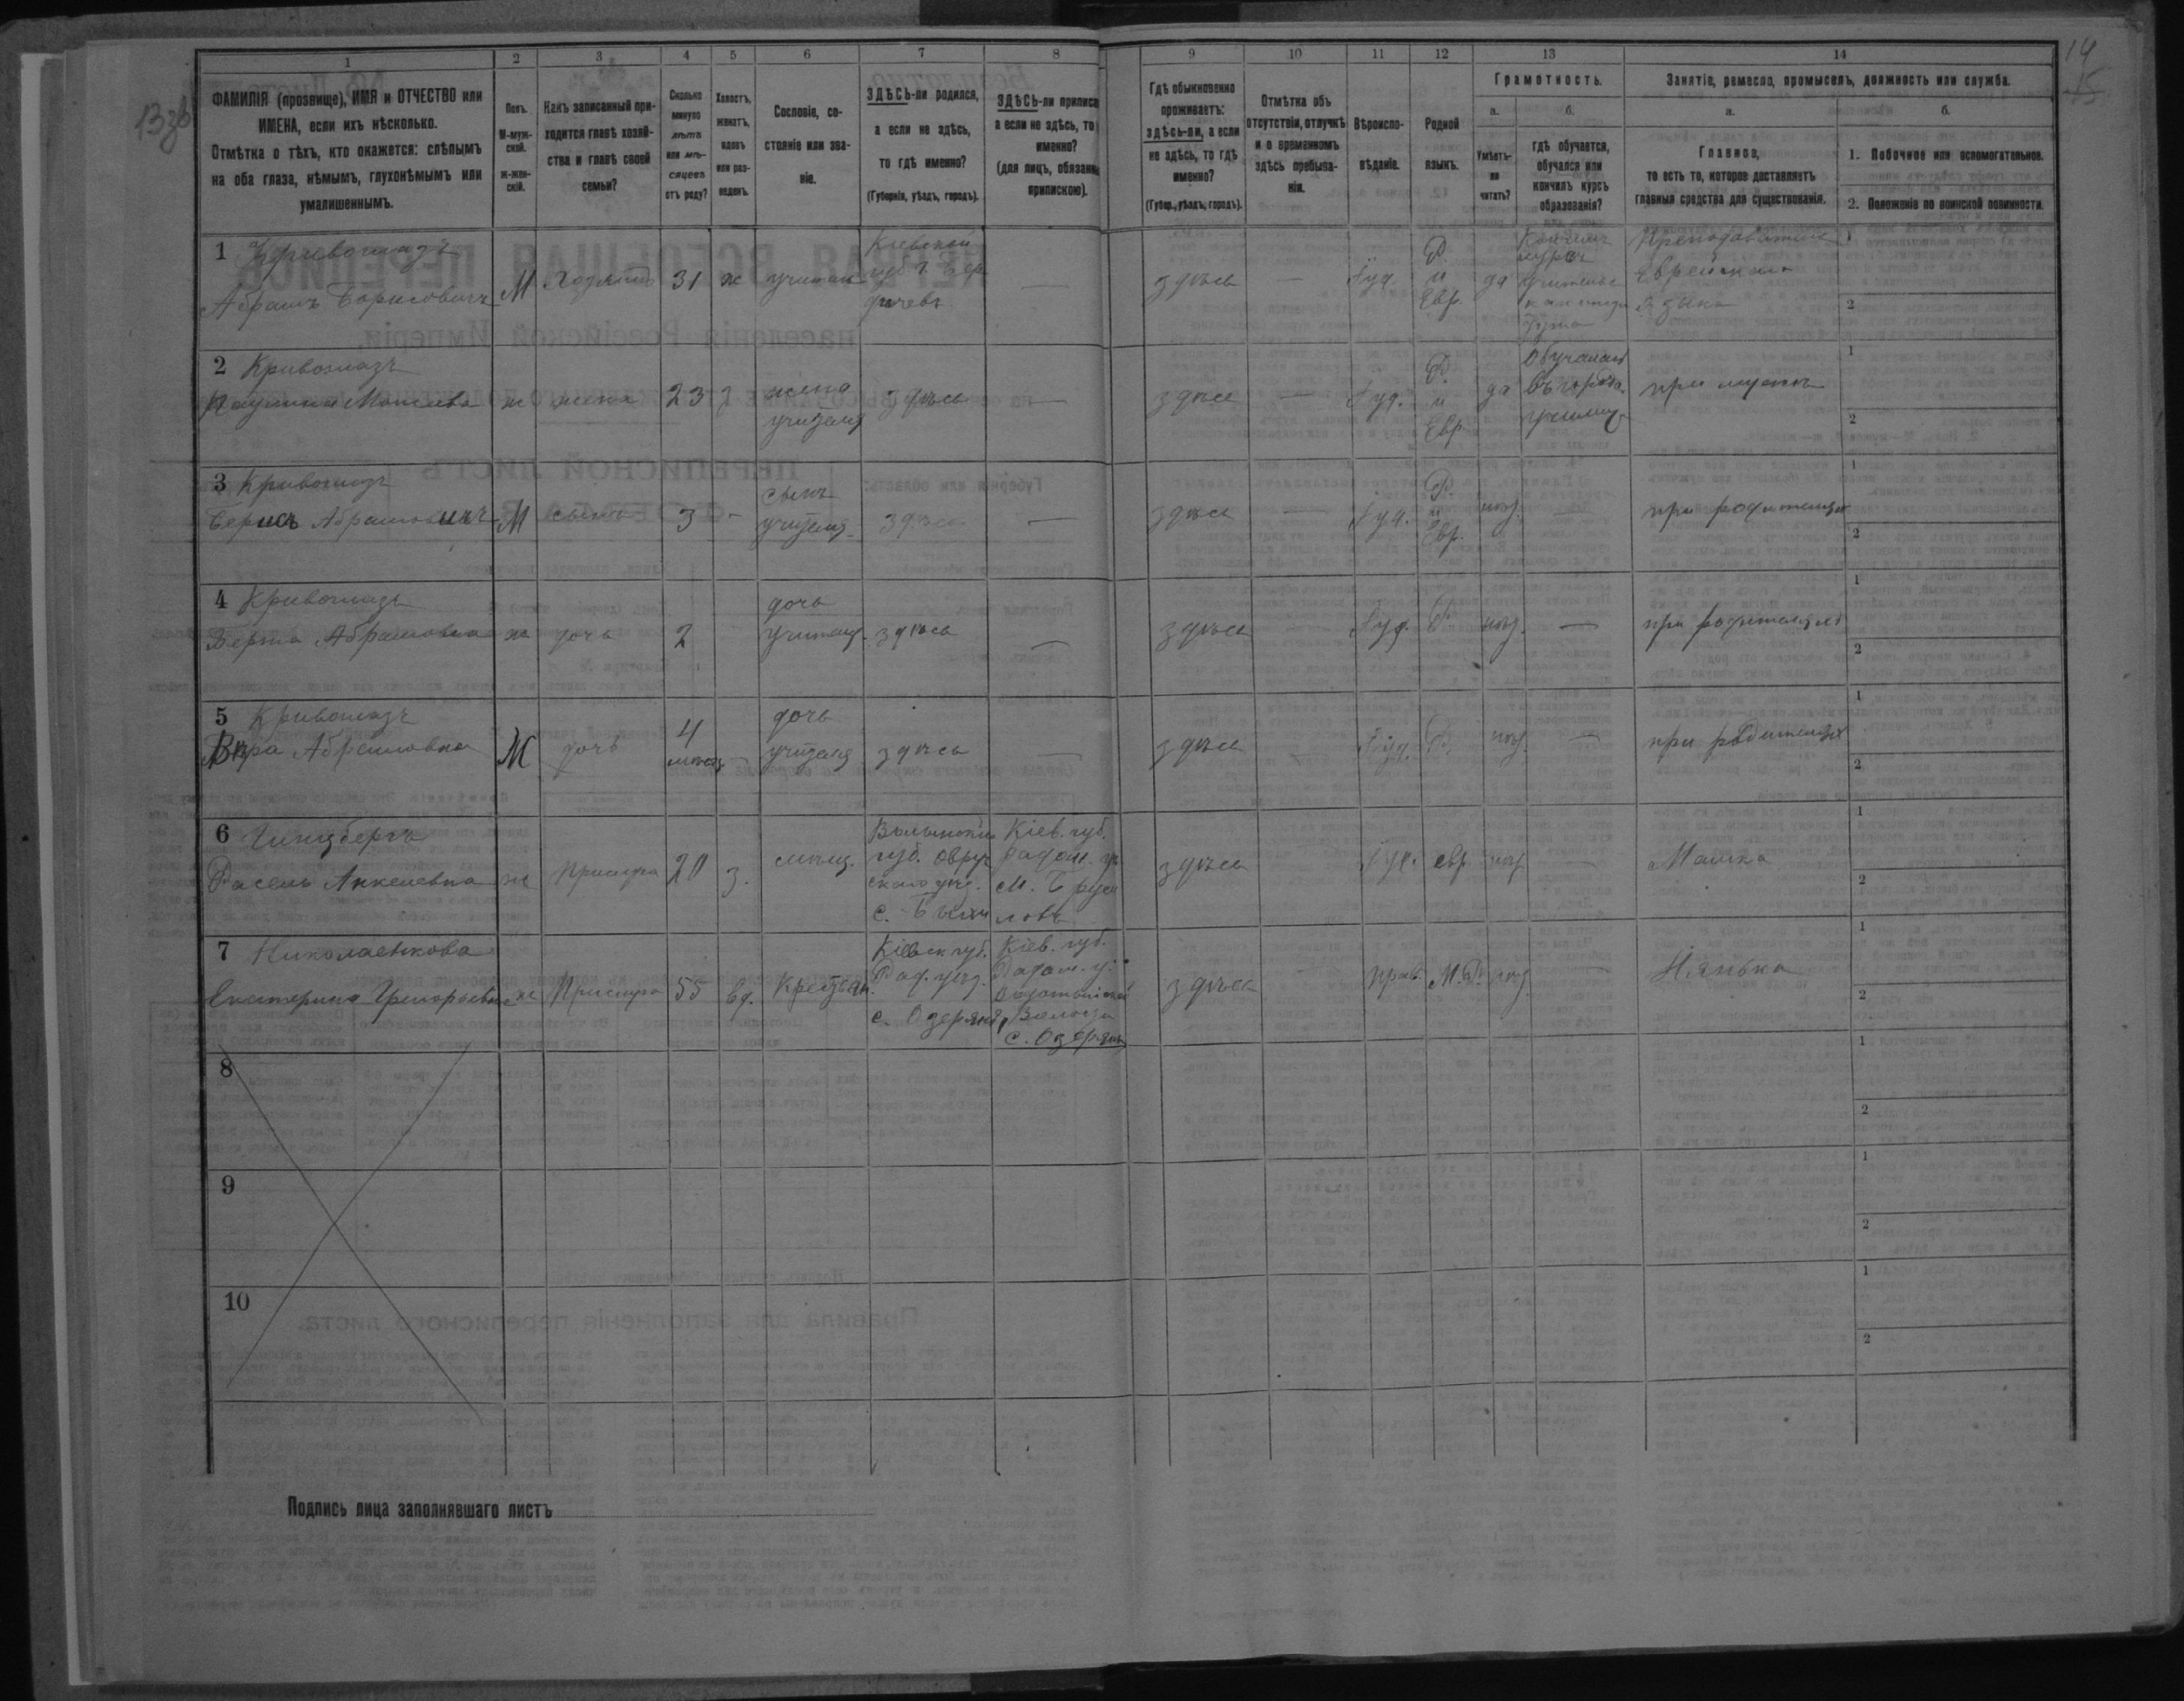 13зв
14
15
1
2
3
4
5
6
7
8
9
10
11
12
13
14
ФАМИЛІЯ (прозвище), ИМЯ и ОТЧЕСТВО или
ИМЕНА, если ихъ нѣсколько.
Отмѣтка о тѣхъ, кто окажется: слѣпымъ
на оба глаза, нѣмымъ, глухонѣмымъ или
умалишеннымъ.
Полъ.
М-муж-
ской.
ж-жен-
скій.
Какъ записанный при-
ходится главѣ хозяй-
ства и главѣ своей
семьи?
Сколько
минуло
лѣтъ
или мѣ-
сяцевъ
отъ роду?
Холостъ,
женатъ,
вдовъ
или раз-
веденъ.
Сословіе, со-
стояніе или зва-
ніе.
ЗДѢСЬ-ли родился,
а если не здѣсь,
то гдѣ именно?
(Губернія, уѣздъ, городъ).
ЗДѢСЬ-ли приписа
а если не здѣсь, то
именно?
(для лицъ, обязанн
припискою).
Гдѣ обыкновенно
проживаетъ:
здѣсь-ли, а если
не здѣсь, то гдѣ
именно?
(Губер., уѣздъ, городъ).
Отмѣтка объ
отсутствіи, отлучкѣ
и о временномъ
здѣсь пребыва-
ніи.
Вѣроиспо-
вѣданіе.
Родной
языкъ.
Грамотность.
а.
Умѣетъ-
ли
читать?
б.
гдѣ обучается,
обучался или
кончилъ курсъ
образованія?
Занятіе, ремесло, промыселъ, должность или служба.
а.
Главное,
то есть то, которое доставляетъ
главныя средства для существованія.
б.
1. Побочное или вспомогательное.
2. Положеніе по воинской повинности.
1
Абрамъ Борисовичъ
М
31
ж
Кіевской
губ. г. Бер
дичевъ
—
здѣсь
—
Іуд.
Р.
и
Евр.
да
Кончилъ
курсъ
Преподаватель
Еврейскаго
Языка
1
2
2 Кривоглазъ
ж
жена
23
з
жена
учителя
здѣсь
—
здѣсь
—
Іуд.
Р.
и
Евр.
да
Обучалась
при мужѣ
1
2
3 Кривоглазъ
Борисъ Абрамовичъ
М
сынъ
3
-
сынъ
учителя
здѣсь
—
здѣсь
—
Іуд.
Р.
и
Евр.
нѣт.
—
при родителях
1
2
4 Кривоглазъ
Берта Абрамовна
ж
дочь
2
дочь
учител.
здѣсь
—
здѣсь
—
Іуд.
Р.
нѣт.
—
при родителях
1
2
5 Кривоглазъ
Вѣра Абрамовна
М
дочь
4
мѣсяц
—
дочь
учителя
здѣсь
—
здѣсь
—
Іуд.
Р.
нѣт.
—
при родителях
1
2
6 Гинзбергъ
Расель Анкелевна
ж
Прислуга
20
з.
мѣщ.
Волынской
губ. Овруч
скаго уѣз.
Кіев. губ.
Радом. у.
М. Бруси
ловъ
здѣсь
Іуд.
евр
нѣт
—
Мамка
1
2
7 Николаенкова
Екатерина Григорьевна
ж
Прислуга
55
вд.
Крестьян.
Кіевск губ.
Рад. уѣз.
с. Озеряны
Кіев. губ.
Радом. у.
Волости
с. Озеряны
здѣсь
—
прав.
М.Р.
нѣт
—
Нянька
1
2
8
1
2
9
1
2
10
1
2
Подпись лица заполнявшаго листъ